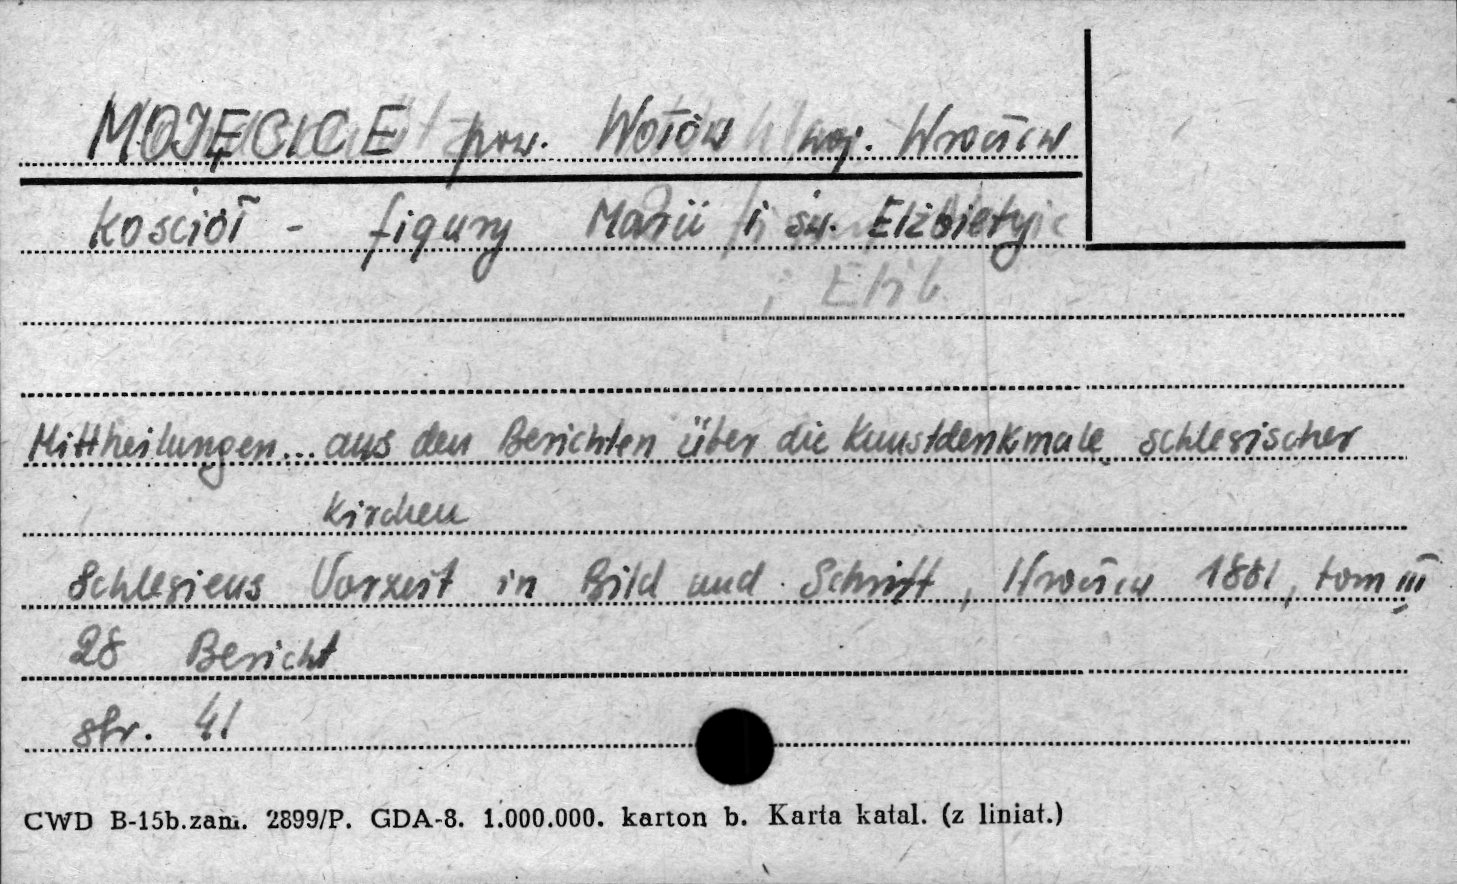 MOJĘCICE pow. Wołów woj. Wrocław
Kościół - figury Marii i św. Elżbiety
i Elżb
Mittheilungen... aus den Berichten über die Kunstdenkmale schlesischer
Kirchen
Schlesiens Vorzeit in Bild und Schrift, Wrocław 1881, tom III
28 Bericht
str. 41
CWD B-15b.zam. 2899/P. GDA-8. 1.000.000. karton b. Karta katal. (z liniat.)